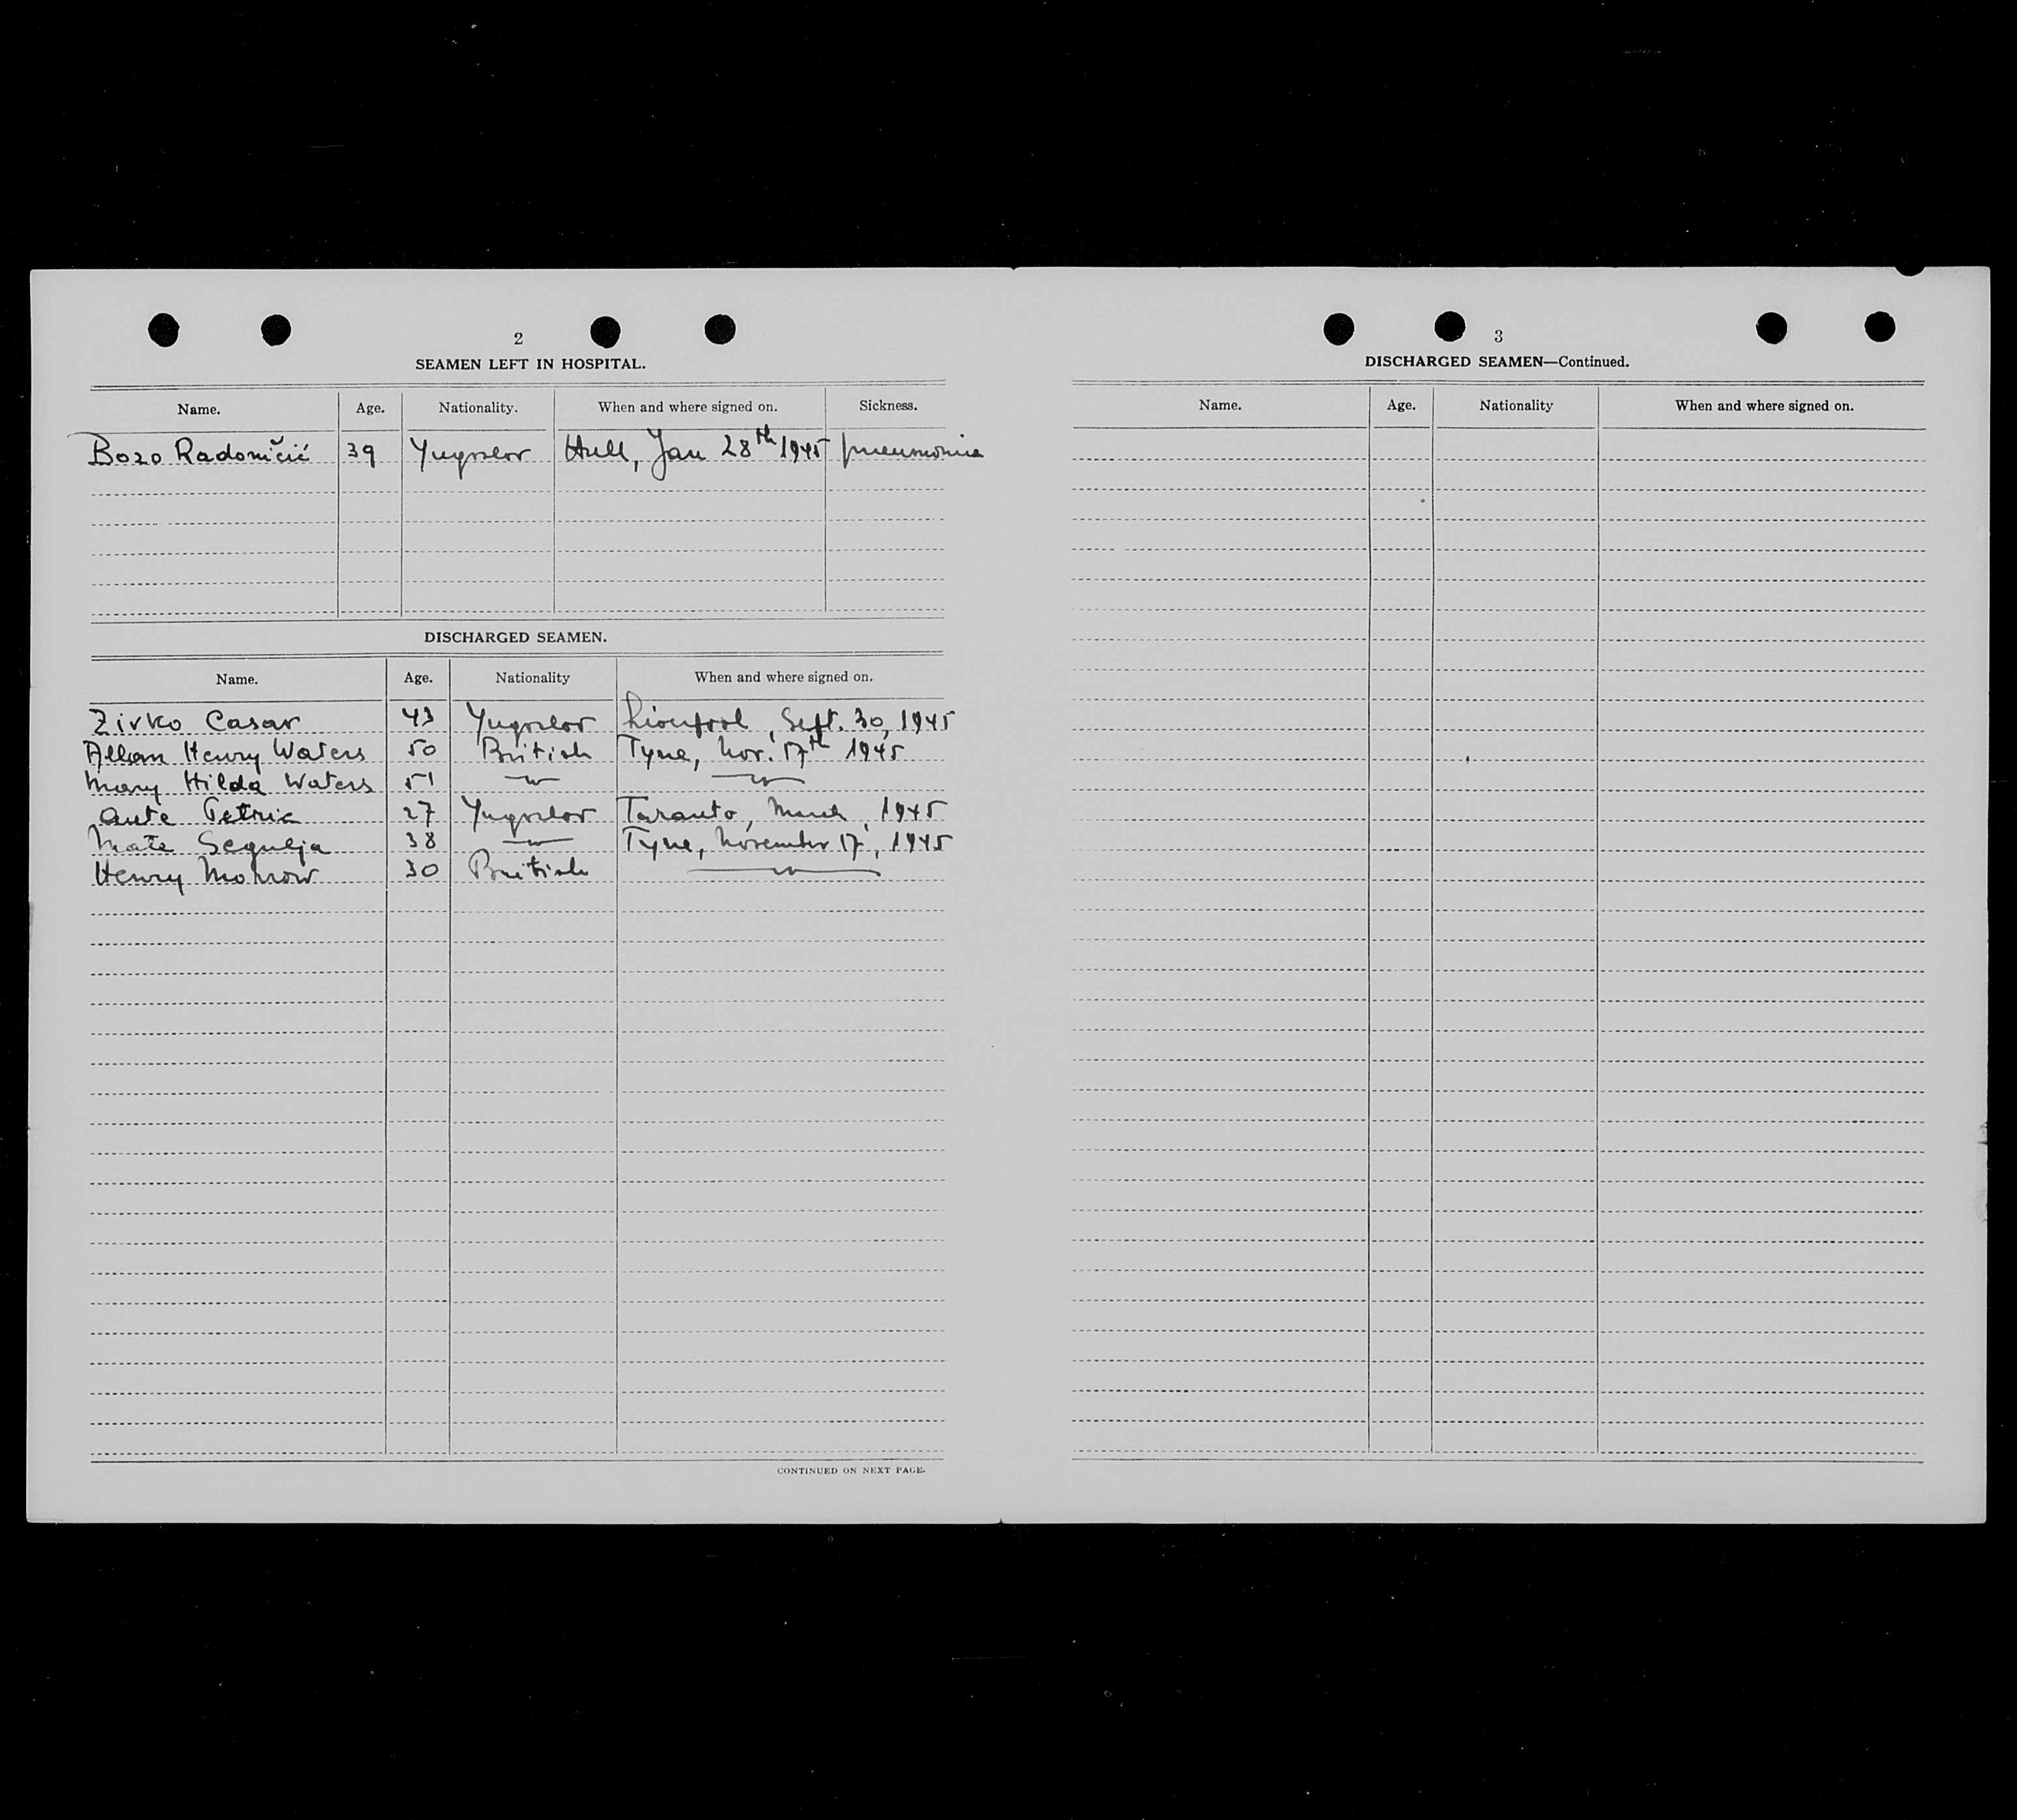 2
SEAMEN LEFT IN HOSPITAL.
Name. Age. Nationality. When and where signed on. Sickness.
Bozo Radoničić 39 Yugoslav Hull, Jan 28th 1945 pneumonia
DISCHARGED SEAMEN.
Name. Age. Nationality When and where signed on.
Zivko Casar 43 Yugoslav Liverpool, Sept. 30, 1945
Allan Henry Waters 50 British Tyne, Nov. 17th 1945
Mary Hilda Waters 51 —"— —"—
Ante Petric 27 Yugoslav Taranto, March, 1945
Mate Segulja 38 —"— Tyne, November 17, 1945
Henry Morrow 30 British —"—
CONTINUED ON NEXT PAGE.
3
DISCHARGED SEAMEN—Continued.
Name. Age. Nationality When and where signed on.